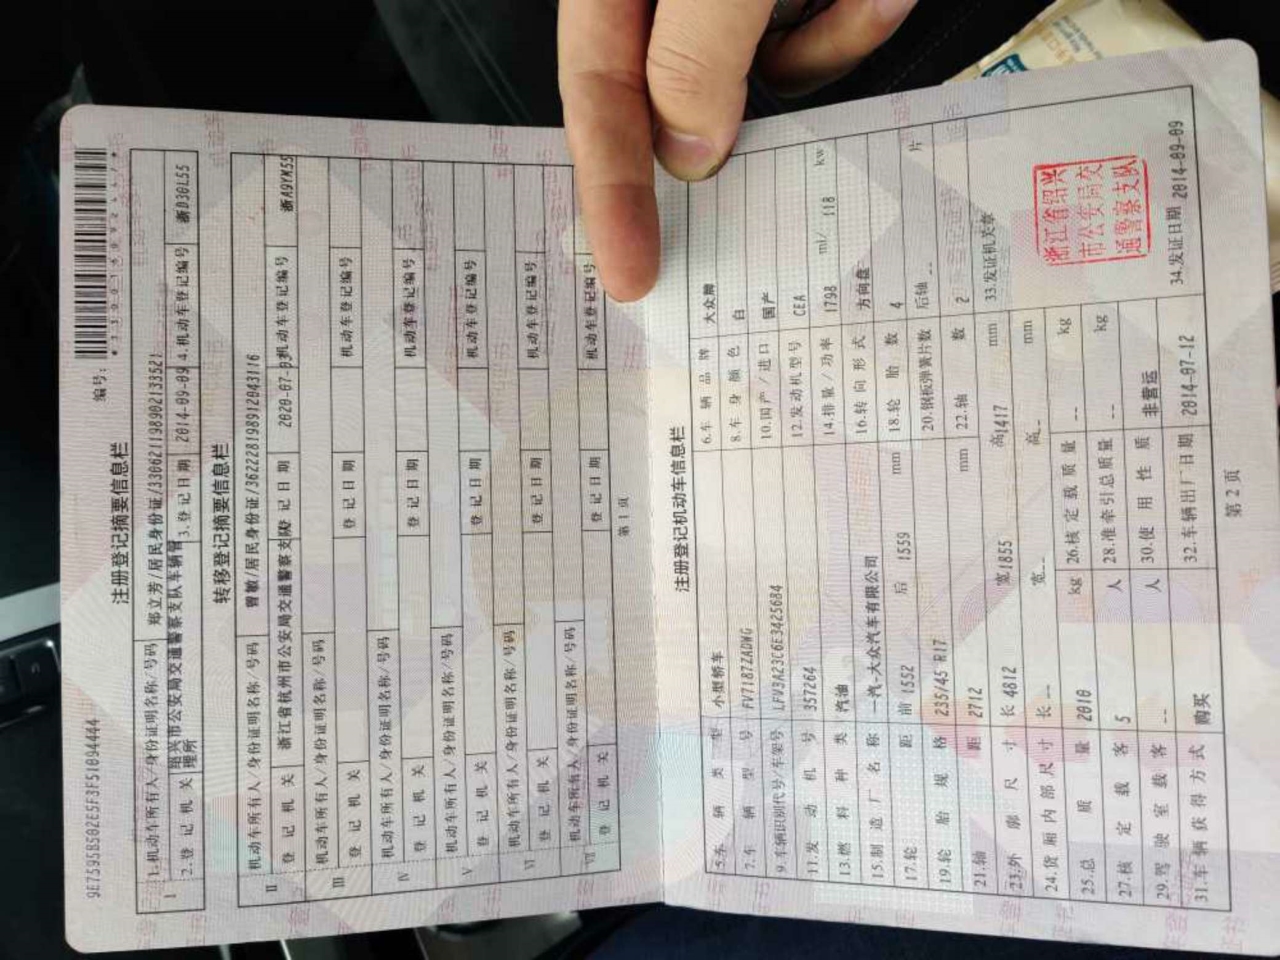 9E7595B502E5F3F51094444
编号:
注册登记摘要信息栏
I
1.机动车所有人/身份证明名称/号码 郑立芳/居民身份证/330621198902133521
2.登记机关 绍兴市公安局交通警察支队车辆管理所 3.登记日期 2014-09-09 4.机动车登记编号 浙D30L55
转移登记摘要信息栏
II
机动车所有人/身份证明名称/号码 曾敏/居民身份证/362228198912043116
登记机关 浙江省杭州市公安局交通警察支队 登记日期 2020-07-03 机动车登记编号 浙A9YK55
III
机动车所有人/身份证明名称/号码
登记机关 登记日期 机动车登记编号
IV
机动车所有人/身份证明名称/号码
登记机关 登记日期 机动车登记编号
V
机动车所有人/身份证明名称/号码
登记机关 登记日期 机动车登记编号
VI
机动车所有人/身份证明名称/号码
登记机关 登记日期 机动车登记编号
VII
机动车所有人/身份证明名称/号码
登记机关 登记日期 机动车登记编号
第1页
注册登记机动车信息栏
5.车辆类型 小型轿车 6.车辆品牌 大众牌
7.车辆型号 FV7187ZADWG 8.车身颜色 白
9.车辆识别代号/车架号 LFV3A23C6E3425684 10.国产/进口 国产
11.发动机号 357264 12.发动机型号 CEA
13.燃料种类 汽油 14.排量/功率 1798 ml/ 118 kw
15.制造厂名称 一汽-大众汽车有限公司 16.转向形式 方向盘
17.轮距 前 1552 后 1559 mm 18.轮胎数 4
19.轮胎规格 235/45 R17 20.钢板弹簧片数 后轴 -- 片
21.轴距 2712 mm 22.轴数 2
23.外廓尺寸 长 4812 宽1855 高1417 mm 33.发证机关章
24.货厢内部尺寸 长 -- 宽-- 高-- mm
浙江省绍兴
市公安局交
通警察支队
25.总质量 2010 kg 26.核定载质量 -- kg
27.核定载客 5 人 28.准牵引总质量 -- kg
29.驾驶室载客 -- 人 30.使用性质 非营运
31.车辆获得方式 购买 32.车辆出厂日期 2014-07-12 34.发证日期 2014-09-09
第2页